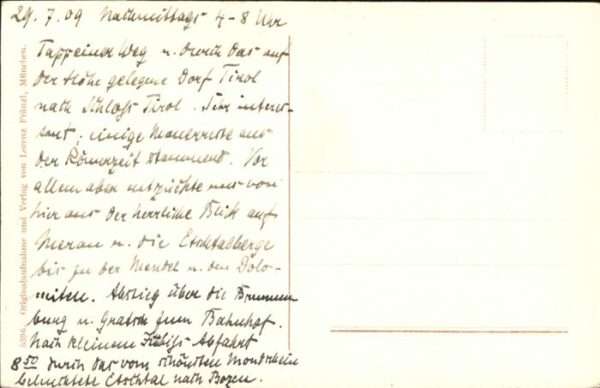 29.7.09 Nachmittags 4-8 Uhr
Tappeiner Weg u. durch das auf
der Höhe gelegene Dorf Tirol
nach Schloss Tirol. Sehr interes-
sant; einige Mauerreste aus
der Römerzeit stammend. Vor
allem aber entzückte uns von
hier aus der herrliche Blick auf
Meran u. die Etschtalberge
bis zu der Mendel u. den Dolo-
miten. Abstieg über die Brunnen
burg u. Gratsch zum Bahnhof.
Nach kleinem Imbiss Abfahrt
8 50 durch das vom schönsten Mondschein
beleuchtete Etschtal nach Bozen.
5396. Originalaufnahme und Verlag von Lorenz Fränzl, München.